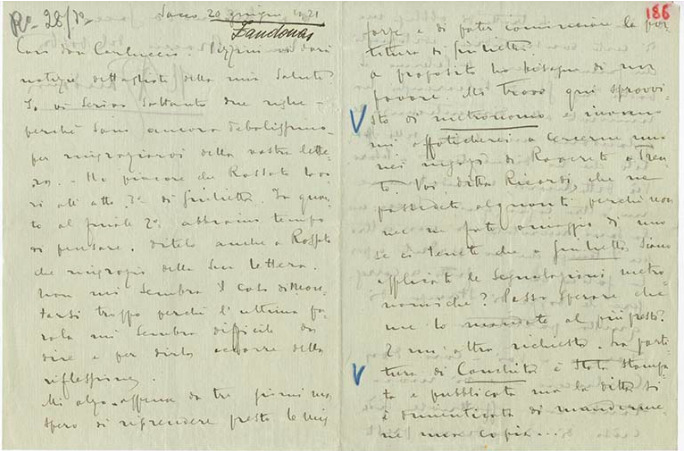 R° 28/73
Sacco 20 giugno 1921
Zandonai
Caro don Carluccio. Pizzini vi darà
notizie dettagliate della mia salute
Io vi scrivo soltanto due righe
perché sono ancora debolissimo
per ringraziarvi della vostra lette
ra. - Ho piacere che Rossato lavo
ri all'atto 3° di Giulietta. In quan
to al finale 2° abbiamo tempo
di pensare. Ditelo anche a Rossato
che ringrazio della sua lettera.
Non mi sembra il caso di
troppo perché l'ultima pa
rola mi sembra difficile da
dire e per dirla occorre della
riflessione.
Mi alzo appena da tre giorni ma
spero di riprendere presto le mie
186
forze e di poter cominciare la par
titura di Giulietta
A proposito ho bisogno di un
favore. Mi trovo qui sprovvi
sto di metronomo e
mi affaticherei a cercarne uno
nei negozi di Rovereto o Tren
to. Voi Ditta Ricordi che ne
possedete alquanti perché non
me ne fate omaggio di uno
se ci tenete che a Giulietta siano
applicate le segnalazioni metro
nomiche? Posso sperare che
me lo mandiate al più presto.
E un'altra richiesta. La parti
tura di Conchita è stata stampa
ta e pubblicata ma la ditta si
è dimenticata di mandarme
ne una copia...